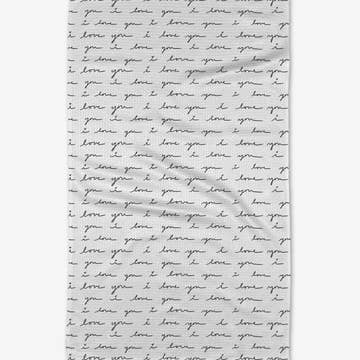 i love you i love you i love
you i love you i love you i
i love you i love you i love
you i love you i love you i
i love you i love you i love
you i love you i love you i
i love you i love you i love
you i love you i love you i
i love you i love you i love
you i love you i love you i
i love you i love you i love
you i love you i love you i
i love you i love you i love
you i love you i love you i
i love you i love you i love
i love you i love you i love
you i love you i love you i
i love you i love you i love
you i love you i love you i
i love you i love you i love
you i love you i love you i
i love you i love you i love
you i love you i love you i
i love you i love you i love
you i love you i love you i
i love you i love you i love
you i love you i love you i
i love you i love you i love
you i love you i love you i
i love you i love you i love